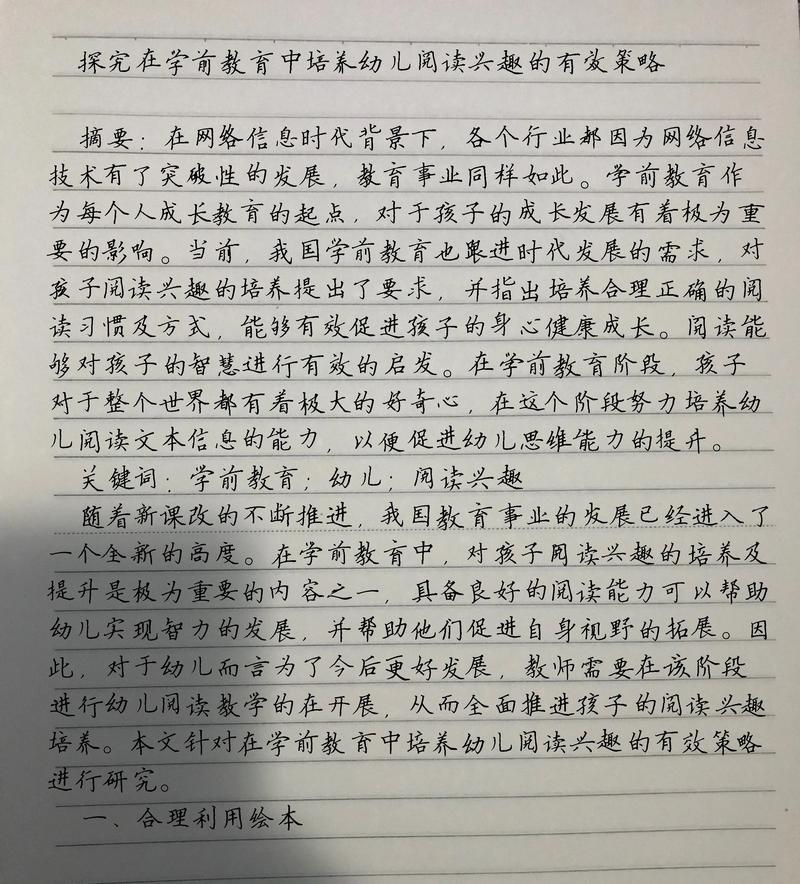 探究在学前教育中培养幼儿阅读兴趣的有效策略
摘要：在网络信息时代背景下，各个行业都因为网络信息
技术有了突破性的发展，教育事业同样如此。学前教育作
为每个人成长教育的起点，对于孩子的成长发展有着极为重
要的影响。当前，我国学前教育也跟进时代发展的需求，对
孩子阅读兴趣的培养提出了要求，并指出培养合理正确的阅
读习惯及方式，能够有效促进孩子的身心健康成长。阅读能
够对孩子的智慧进行有效的启发。在学前教育阶段，孩子
对于整个世界都有着极大的好奇心，在这个阶段努力培养幼
儿阅读文本信息的能力，以便促进幼儿思维能力的提升。
关键词：学前教育；幼儿；阅读兴趣
随着新课改的不断推进，我国教育事业的发展已经进入了
一个全新的高度。在学前教育中，对孩子阅读兴趣的培养及
提升是极为重要的内容之一，具备良好的阅读能力可以帮助
幼儿实现智力的发展，并帮助他们促进自身视野的拓展。因
此，对于幼儿而言为了今后更好发展，教师需要在该阶段
进行幼儿阅读教学的在开展，从而全面推进孩子的阅读兴趣
培养。本文针对在学前教育中培养幼儿阅读兴趣的有效策略
进行研究。
一、合理利用绘本